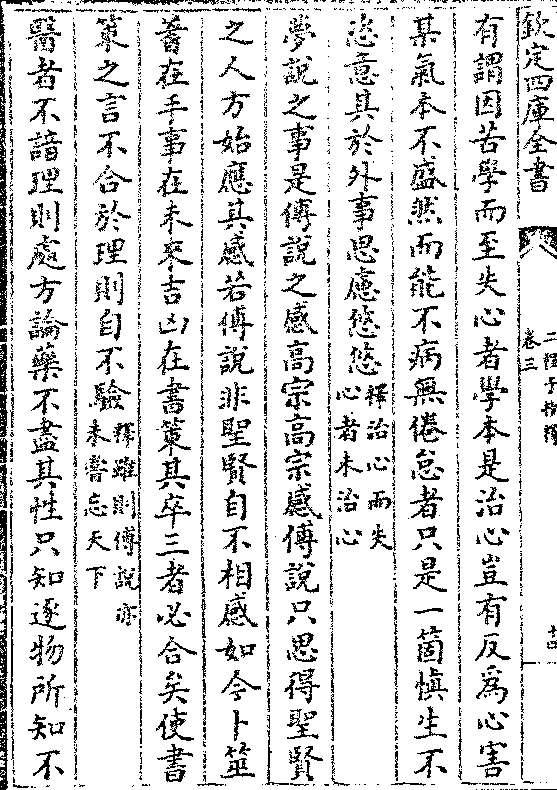 欽定四庫全書
卷三
有謂因苦學而至失心者學本是治心豈有反為心害
某氣本不盛然而能不病無倦怠者只是一箇慎生不
恣意其於外事思慮悠悠釋治心而失心者未治心
夢說之事是傅說之感高宗高宗感傅說只思得聖賢
之人方始應其感若傅說非聖賢自不相感如今卜筮
蓍在手事在未來吉凶在書策其卒三者必合矣使書
策之言不合於理則自不驗釋雖則傅說亦未嘗忘天下
醫者不諳理則處方論藥不盡其性只知逐物所知不